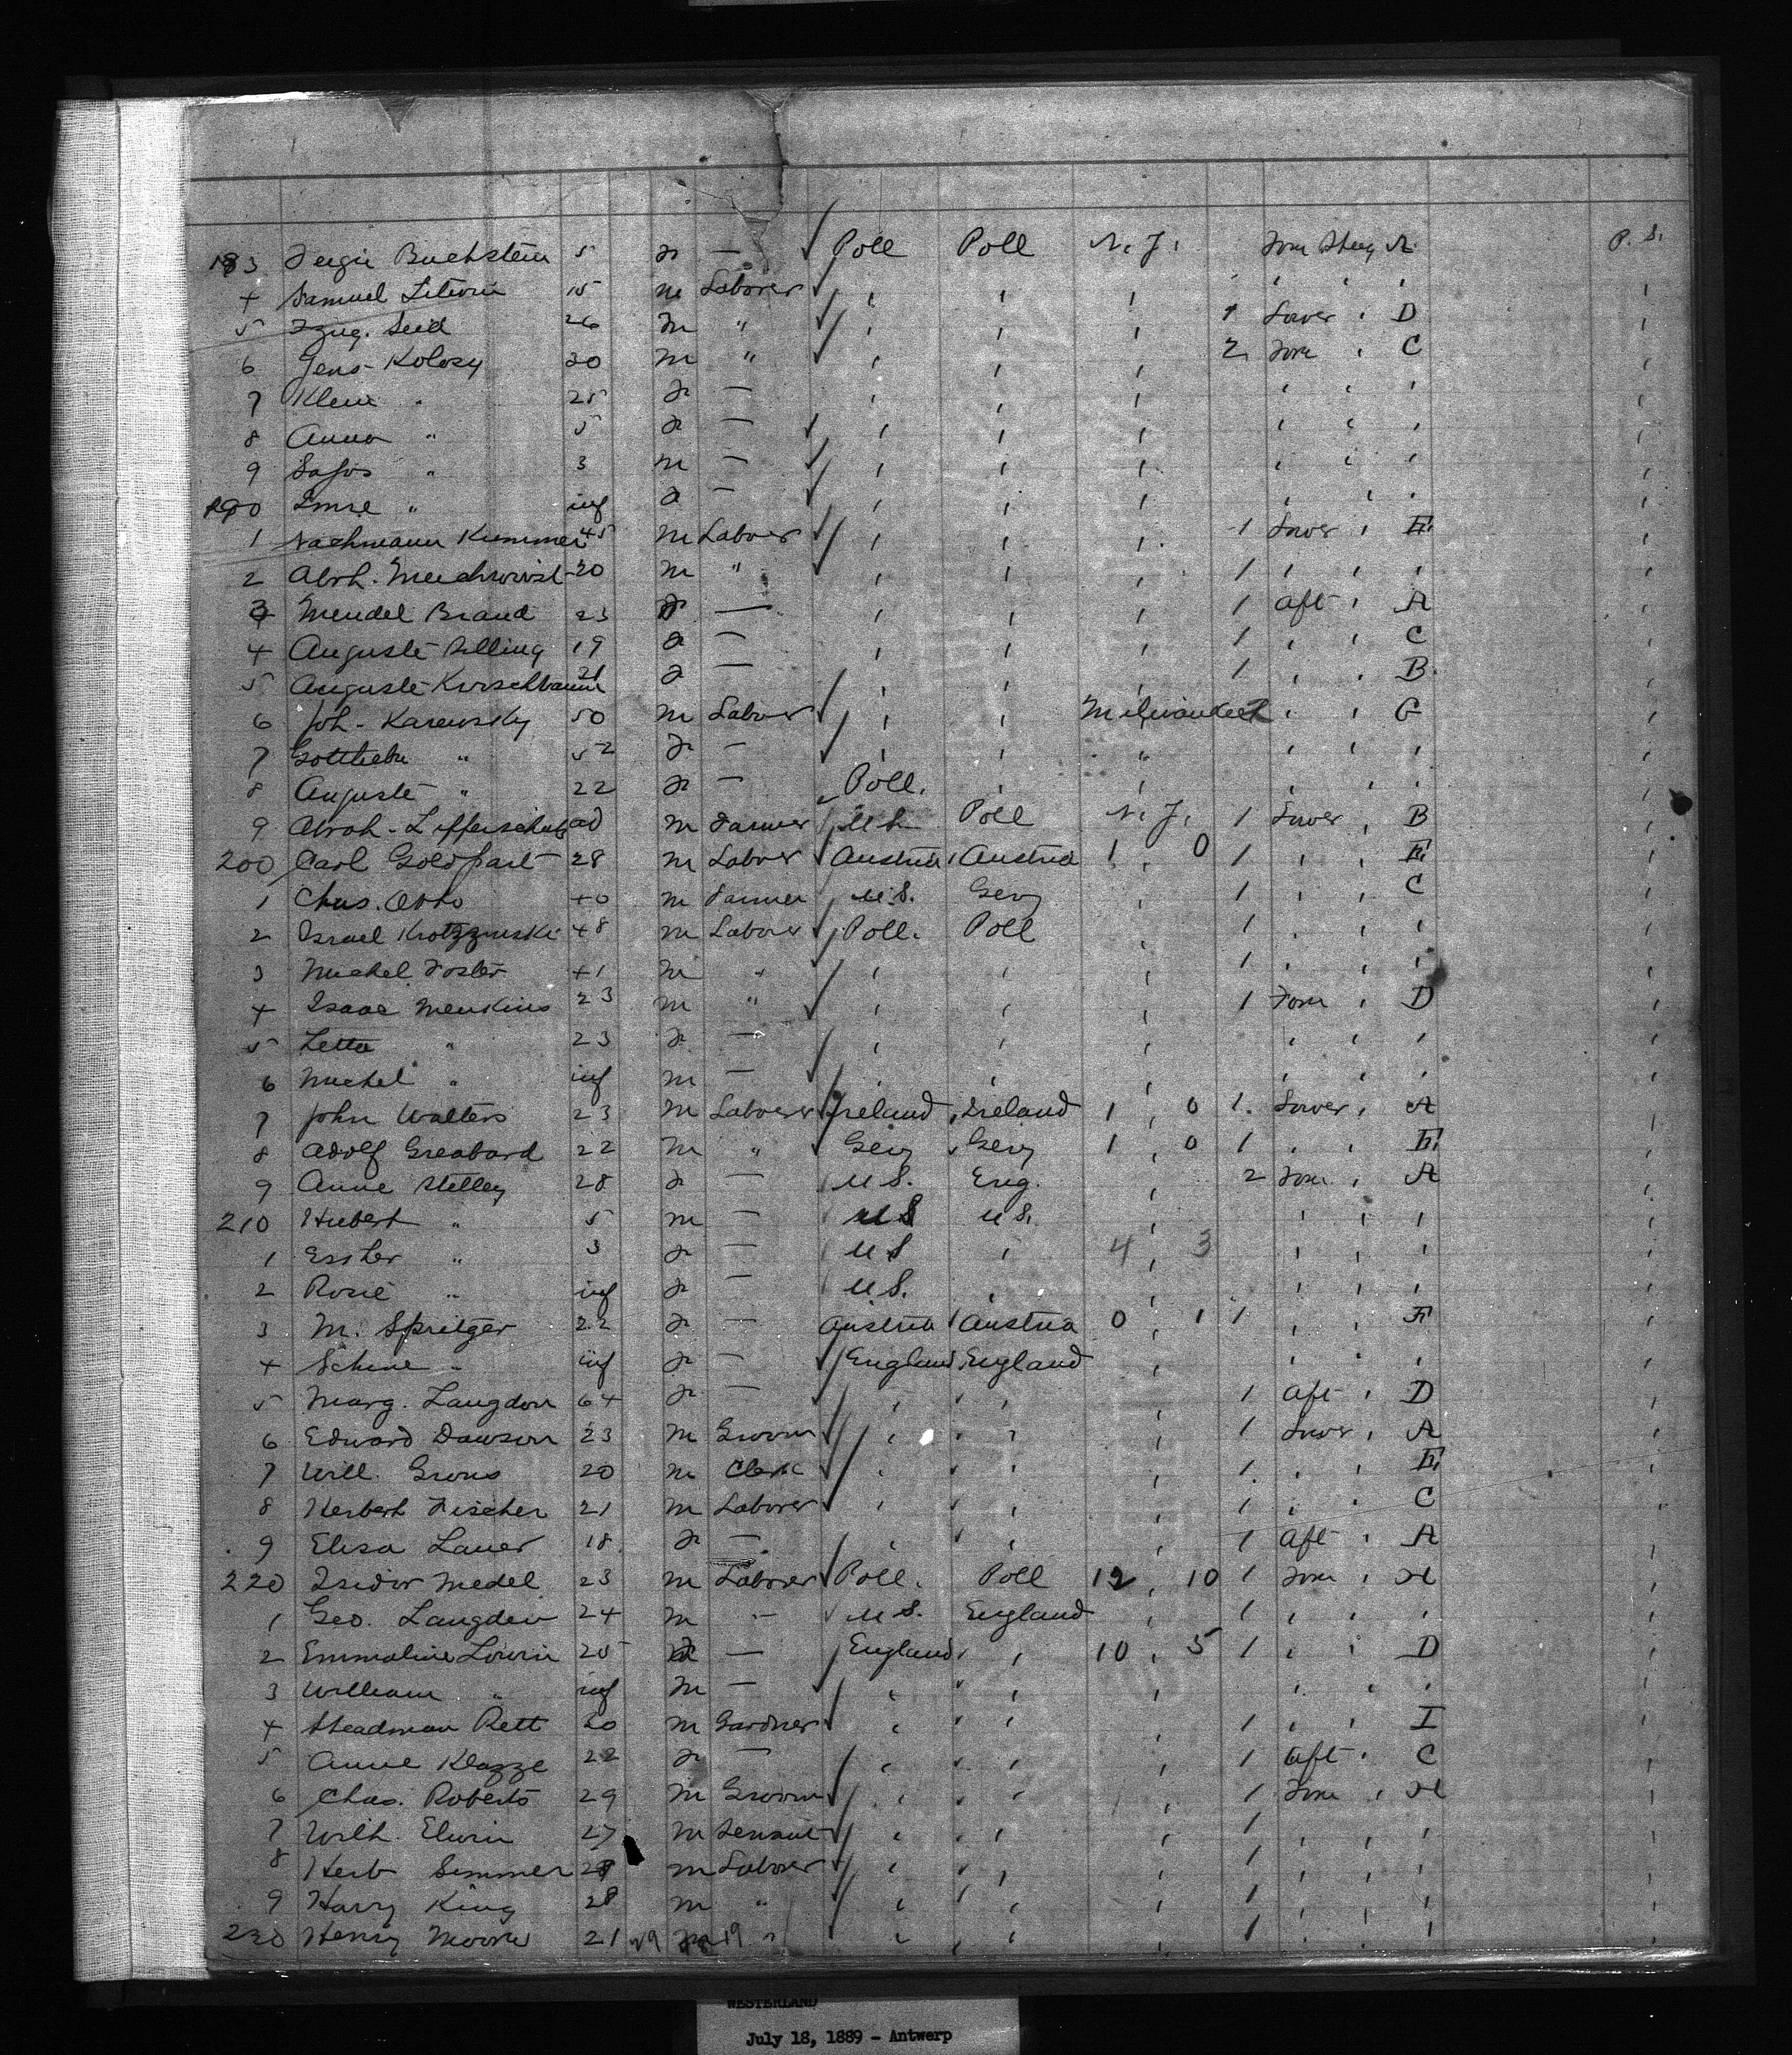 183 Feigie Buchstein 5 F — ✓ Poll Poll N. J. Fore Steeg A. P. S.
4 Samuel Litwin 15 M Laborer ✓ , , , , , , ,
5 Izug. Seid 26 M " ✓ , , , 1 Lower , D ,
6 Jens Kolosy 30 M " ✓ , , , 2 Fore , C ,
7 Klein " 25 F — , , , , , , ,
8 Anna " 5 F — ✓ , , , , , , ,
9 " 3 M — ✓ , , , , , , ,
190 Imre " inf F — ✓ , , , , , , ,
1 Nachmann Kummer 45 M Laborer ✓ , , , 1 Lower , E ,
2 Abrh. 20 M " ✓ , , , 1 , , , ,
3 Mendel Brand 23 F — , , , 1 Aft , A ,
4 Auguste Rilling 19 F — , , , 1 , , C ,
5 Auguste Kirschbaum 21 F — ✓ , , , 1 , , B. ,
6 Joh. Karewsky 50 M Labor ✓ , , Milwaukee 2 , , G ,
7 Gottliebe " 52 F — ✓ , , " , , , ,
8 Auguste " 22 F — Poll. , , , , , ,
9 Abrah. Lifferschutz ad M Farmer / U S. Poll N. J. 1 Lower , B ,
200 Carl Goldfart 28 M Labor ✓ Austria Austria 1 , 0 1 , , E ,
1 Chas. Otto 40 M Farmer / U.S. Gery , 1 , , C ,
2 Israel Krotzzinski 48 M Laborer ✓ Poll. Poll , 1 , , , ,
3 Michel Foster 41 M " ✓ , , , 1 , , , ,
4 Isaac Menkins 23 M " ✓ , , , 1 Fore , D ,
5 Letta " 23 F — , , , , , , ,
6 Michel " inf M — ✓ , , , , , , ,
7 John Walters 23 M Laborer ✓ Ireland Ireland 1 , 0 1. Lower , A ,
8 Adolf Greabard 22 M " ✓ Gery Gery 1 , 0 1 , , E ,
9 Anne Stelley 28 F — / U S. Eng. , 2 Fore , A ,
210 Hubert " 5 M — / U S U S. , , , , ,
1 Esther " 3 F — / U S , 4 , 3 , , , ,
2 Rosie " inf F — U. S. , , , , , ,
3 M. Spretzer 22 F — Austria Austria 0 , 1 1 , , F ,
4 Schine " inf F — ✓ England England , , , , ,
5 Marg. Langdon 64 F — ✓ , , , 1 Aft , D ,
6 Edward Dawson 23 M Groom ✓ , , , 1 Lower , A ,
7 Will. Grous 20 M Clerk ✓ , , , 1. , , E ,
8 Herbert Fischer 21 M Laborer ✓ , , , 1 , , C ,
9 Elisa Lauer 18 F — , , , 1 Aft , A ,
220 Isidor Medel 23 M Laborer ✓ Poll. Poll 12 , 10 1 Fore , H ,
1 Geo. Langden 24 M " ✓ U S. England , 1 , , , ,
2 Emmaline Lowin 25 F — England , 10 , 5 1 , , D ,
3 William " inf M — ✓ , , , , , , ,
4 Steadman Rett 20 M Gardner ✓ , , , 1 , , I ,
5 Anne Klazze 22 F — ✓ , , , 1 Aft , C ,
6 Chas. Roberts 29 M Groom ✓ , , , 1 Fore , H ,
7 Wilh. Elwin 27 M Servant ✓ , , , 1 , , , ,
8 Herb Simmer M Laborer ✓ , , , 1 , , , ,
9 Harry King 28 M " ✓ , , , 1 , , , ,
230 Henry Moore 21 29 M 19 " / , , , 1 , , , ,
WESTERLAND
July 18, 1889 - Antwerp